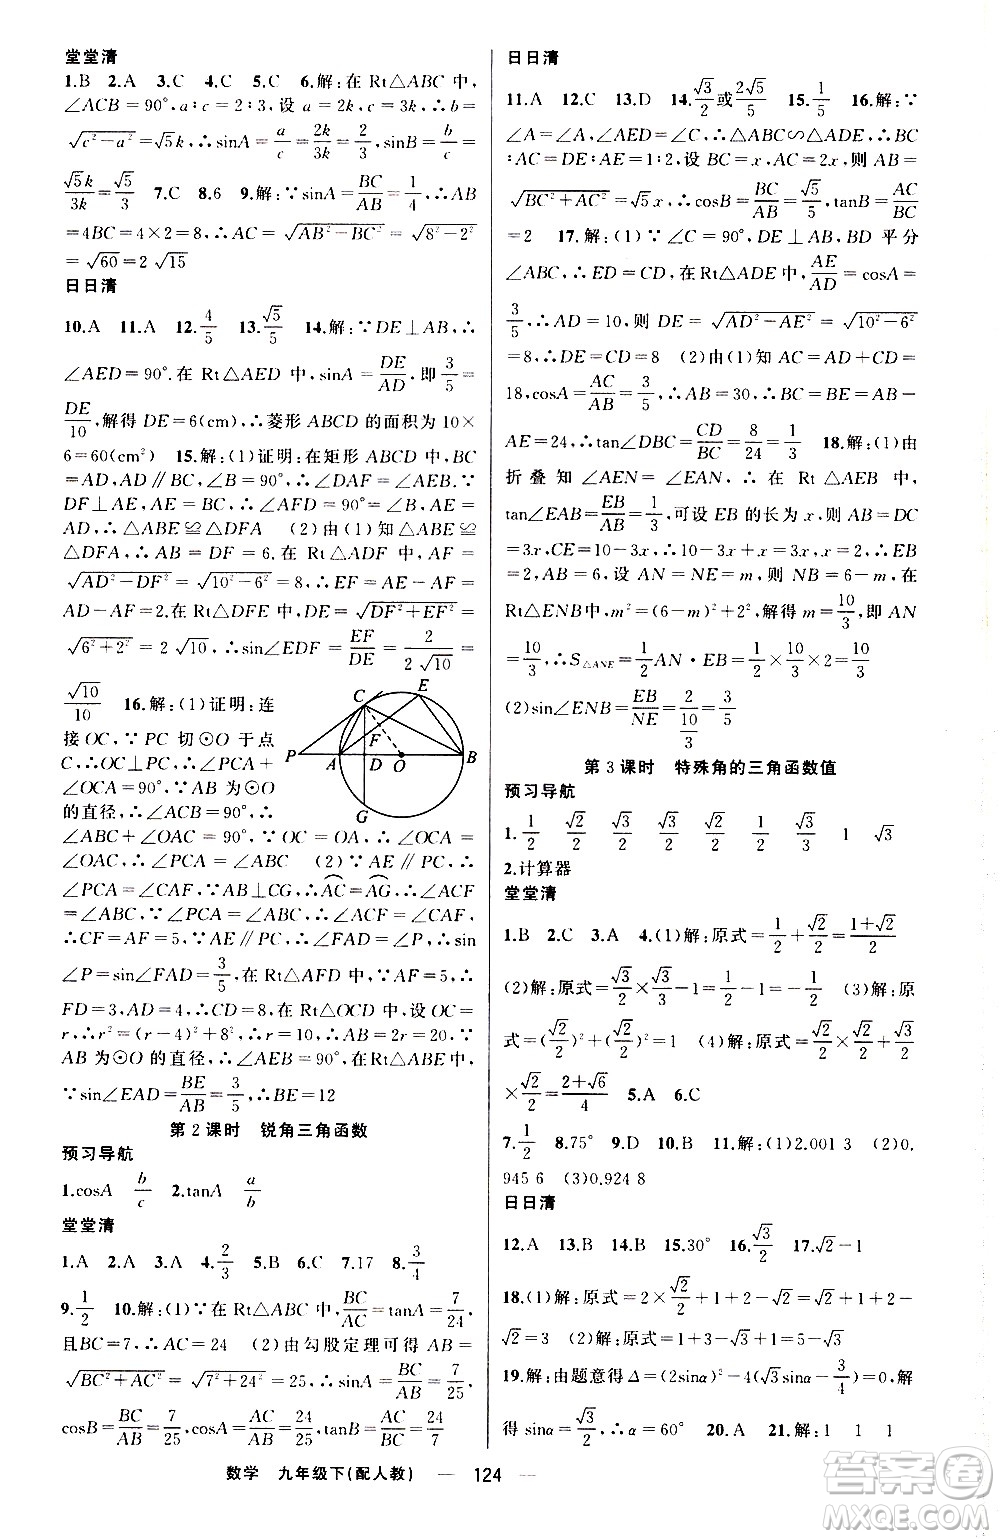 堂堂清
1.B 2.A 3.C 4.C 5.C 6.解:在 Rt△ABC 中,
∠ACB=90°,a∶c=2∶3,设 a=2k,c=3k,∴b=
√(c²-a²)=√5k,∴sinA=a/c=2k/3k=2/3,∴sinB=b/c=
√5k/3k=√5/3 7.C 8.6 9.解:∵sinA=BC/AB=1/4,∴AB
=4BC=4×2=8,∴AC=√(AB²-BC²)=√(8²-2²)
=√60=2√15
日日清
10.A 11.A 12.4/5 13.√5/5 14.解:∵DE⊥AB,∴
∠AED=90°.在 Rt△AED 中,sinA=DE/AD,即3/5=
DE/10,解得 DE=6(cm),∴菱形 ABCD 的面积为 10×
6=60(cm²) 15.解:(1)证明:在矩形 ABCD 中,BC=
AD,AD∥BC,∠B=90°,∴∠DAF=∠AEB.∵
DF⊥AE,AE=BC,∴∠AFD=90°=∠B,AE=
AD,∴△ABE≌△DFA (2)由(1)知△ABE≌
△DFA,∴AB=DF=6.在 Rt△ADF 中,AF=
√(AD²-DF²)=√(10²-6²)=8,∴EF=AE-AF=
AD-AF=2.在 Rt△DFE 中,DE=√(DF²+EF²)=
√(6²+2²)=2√10,∴sin∠EDF=EF/DE=2/(2√10)=
√10/10 16.解:(1)证明:连
接 OC,∵PC 切⊙O 于点
C,∴OC⊥PC,∴∠PCO
=90°,∵AB 为⊙O
的直径,∴∠ACB=90°,∴∠PCA+∠OCA=90°,
∠B+∠OAC=90°,∵OC=OA,∴∠OCA=
∠OAC,∴∠PCA=∠ABC (2)∵AE∥PC,∴
∠PCA=∠CAF,∵AB⊥CG,∴AC=AG,∴∠ACF
=∠ABC,∵∠PCA=∠ABC,∴∠ACF=∠CAF,
∴CF=AF=5,∵AE∥PC,∴∠FAD=∠P,∴sin
∠P=sin∠FAD=3/5,在 Rt△AFD 中,AF=5,
FD=3,AD=4,∴CD=8,在 Rt△OCD 中,设 OC=
r,∴r²=(r-4)²+8²,∴r=10,∴AB=2r=20,∵
AB 为⊙O 的直径,∴∠AEB=90°,在 Rt△ABE 中,
∵sin∠EAD=BE/AB=3/5,∴BE=12
第 2 课时 锐角三角函数
预习导航
1.cosA b/c 2.tanA a/b
堂堂清
1.A 2.A 3.A 4.2/3 5.B 6.C 7.17 8.3/4
9.1/2 10.解:(1)∵在 Rt△ABC 中,BC/AC=tanA=7/24,
且BC=7,∴AC=24 (2)由勾股定理可得 AB=
√(BC²+AC²)=√(7²+24²)=25,∴sinA=BC/AB=7/25,
cosB=BC/AB=7/25,cosA=AC/AB=24/25,tanB=AC/BC=24/7
日日清
11.A 12.C 13.D 14.√3/2或2√5/5 15.1/4 16.解:∵
∠A=∠A,∠AED=∠C,∴△ABC∽△ADE,∴BC
∶AC=DE∶AE=1∶2,设 BC=x,AC=2x,则 AB=
√(BC²+AC²)=√5x,∴cosB=BC/AB=√5/5,tanB=AC/BC
=2 17.解:(1)∵∠C=90°,DE⊥AB,BD 平分
∠ABC,∴ED=CD,在 Rt△ADE 中,AE/AD=cosA=
3/5,∴AD=10,则 DE=√(AD²-AE²)=√(10²-6²)
=8,∴CD=DE=8 (2)由(1)知 AC=AD+CD=
18,cosA=AC/AB=3/5,∴AB=30,∴BC=BE=AB-
AE=24,∴tan∠DBC=CD/BC=8/24=1/3 18.解:(1)由
折叠知∠AEN=∠EAN,∴在 Rt△ABE 中,
tan∠EAB=EB/AB=1/3,可设 EB 的长为 x,AB=DC
=3x,CE=10-3x,∴10-3x+x=6,∴x=2,∴EB
=2,DC=6,设 AN=NE=m,则 NB=6-m,在
Rt△ENB 中,m²=(6-m)²+2²,解得 m=10/3,即 AN
=10/3,∴S△ANE=1/2AN·EB=1/2×10/3×2=10/3
(2)sin∠ENB=EB/NE=2/(10/3)=3/5
第 3 课时 特殊角的三角函数值
预习导航
1.1/2 √2/2 √3/2 √3/2 √2/2 1/2 √3/3 1 √3
2.计算器
堂堂清
1.B 2.C 3.A 4.(1)解:原式=1/2+√2/2=(1+√2)/2
(2)解:原式=√3/2×√3/3-1/2=1/2-1/2=0 (3)解:原
式=(√2/2)²+(√2/2)²=1 (4)解:原式=√2/2+√3/2
×√2/2=(2√2+√6)/4 5.A 6.C
7.1/2 8.75° 9.D 10.B 11.解:(1)2.001 3 (2)0.
945 6 (3)0.924 8
日日清
12.A 13.B 14.B 15.30° 16.√3/2 17.√2-1
18.(1)解:原式=2×√2/2+1/2+2×1/2×1/2+2-
√2=3 (2)解:原式=1+3-√3+√3-1=3
19.解:由题意得 Δ=(2sinα)²-4(√3sinα-3/4)=0,解
得 sinα=√3/2,∴α=60° 20.A 21.解:(1)1 1 1
数学 九年级下(配人教) — 124 —
P A D O B C E F G
答案圈
MXQE.COM